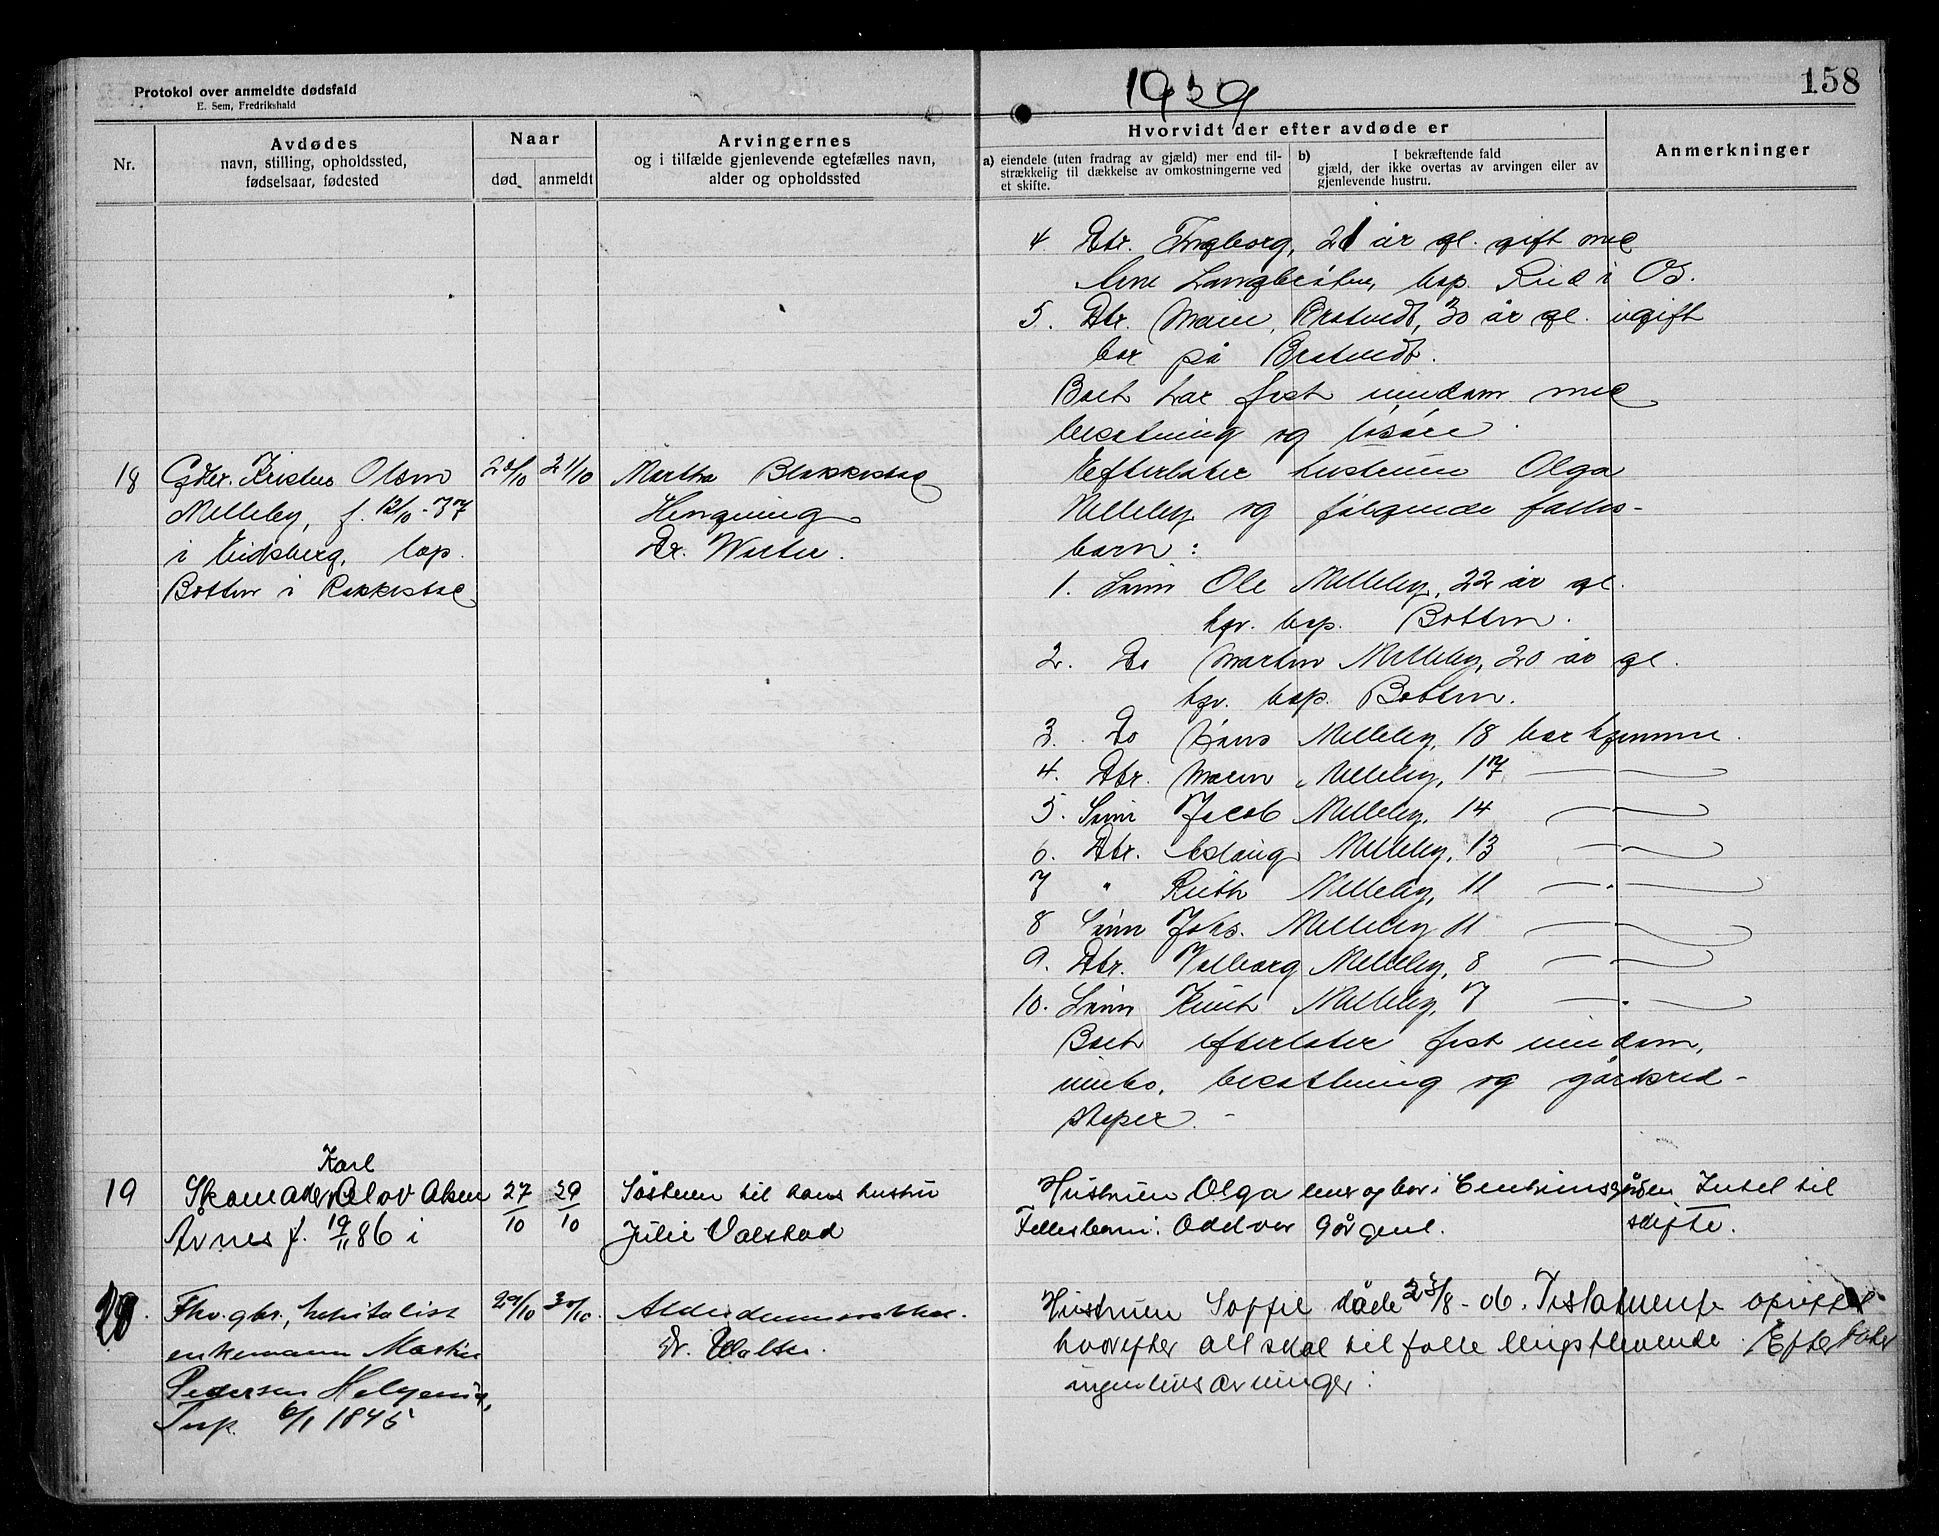 Protokol over anmeldte dødsfald
E. Sem, Fredrikshald
1939
158
Nr.
Avdødes
navn, stilling, opholdssted,
fødselsaar, fødested
Naar
død
anmeldt
Arvingernes
og i tilfælde gjenlevende egtefælles navn,
alder og opholdssted
Hvorvidt der efter avdøde er
a) eiendele (uten fradrag av gjæld) mer end til-
strækkelig til dækkelse av omkostningerne ved
et skifte.
b) I bekræftende fald
gjæld, der ikke overtas av arvingen eller av
gjenlevende hustru.
Anmerkninger
4. Dtr. Ingborg, 21 år gl. gift med
Arne bop. Rud i Os.
5. Dtr. Marie Bratvedt, 30 år gl. ugift
bor på Bratvedt.
Boet har fast eiendom med
besetning og løsøre.
18
Gdbr. Kristen Olsen
Melleby, f. 12/10-
i Eidsberg, bop.
Botten i Rakkestad
21/10
Martha Blakkestad
Dr. Walter.
Efterlater hustruen Olga
Melleby og følgende felles-
barn:
1. Sønn Ole Melleby, 22 år gl.
hjv. bop. Botten.
2. Do Martin Melleby, 20 år gl.
hjv. bop. Botten.
3. Do Hans Melleby, 18 bor hjemme.
4. Dtr. Maren Melleby, 17 — " —
5. Sønn Jacob Melleby, 14 — " —
6. Dtr. Aslaug Melleby, 13 — " —
7 " Ruth Melleby, 11 — " —
8 Sønn Johs. Melleby 11 — " —
9. Dtr. Valborg Melleby, 8 — " —
10. Sønn Knut Melleby, 7 — " —
Boet efterlater fast eiendom,
innbo, besetning og gårdsred-
skaper. -
19
Karl
Skomaker Olov Olsen
Årnes f. 19/11 86 i
27/10
29/10
Søsteren til hans hustru
Julie Valstad
Hustruen Olga lever og bor i Centrumsgården
Fellesbarn: Oddvar 9 år gml.
Intet til
skifte.
20.
Fhv. gbr., kapitalist
enkemann Martin
Pedersen
6/1 1845
29/10
30/10
Dr. Walter.
Hustruen Soffie døde 23/8-06. Testamente oprettet
hvorefter alt skal til falle lengstlevende. Efterlater
ingen livsarvinger.